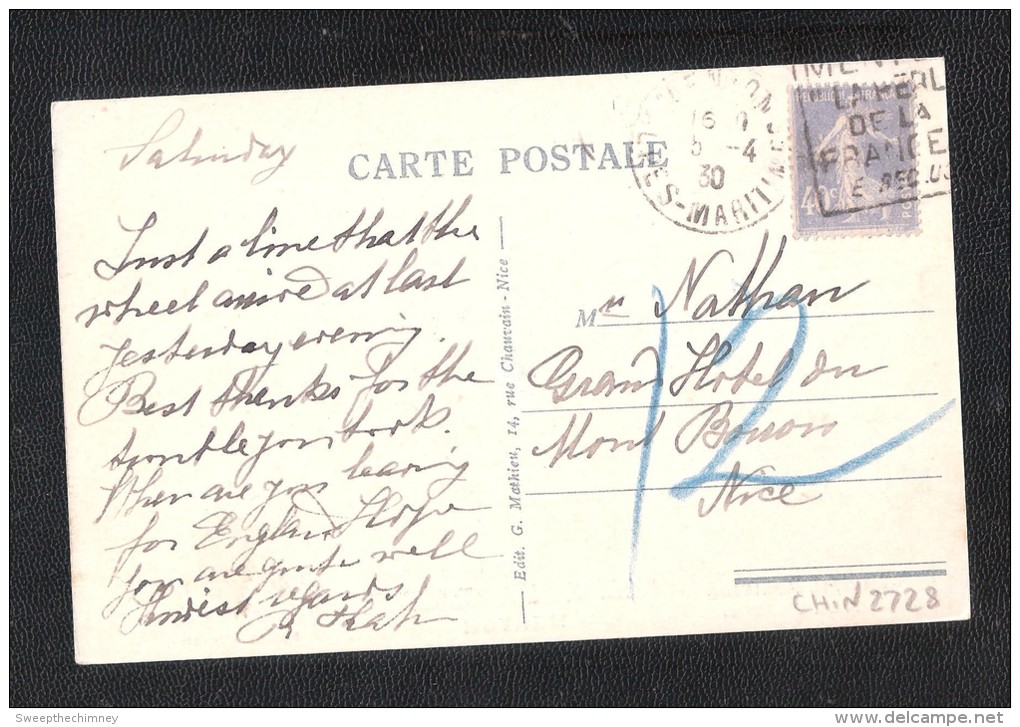 Saturday
CARTE POSTALE
Just a line that the
wheel arrived at last
yesterday evening.
Best thanks for the
trouble you took.
When are you leaving
for England Hope
you are quite well
Kindest regards
Edit. G. Mathieu, 14, rue Chauvain - Nice
MENTON
16
5 -4
30
ALPES-MARITIMES
MENTON
LA PERLE
DE LA
FRANCE
REPUBLIQUE FRANCAISE
40c
POSTES
Mr Nathan
Grand Hotel du
Mont Boron
Nice
12
CHIN 2728
Sweepthechimney
delcampe.net